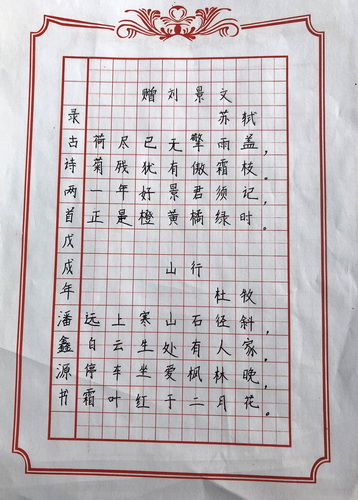 赠刘景文
苏轼
荷尽已无擎雨盖，
菊残犹有傲霜枝。
一年好景君须记，
正是橙黄橘绿时。
山行
杜牧
远上寒山石径斜，
白云生处有人家。
停车坐爱枫林晚，
霜叶红于二月花。
录古诗两首戊戌年潘鑫源书